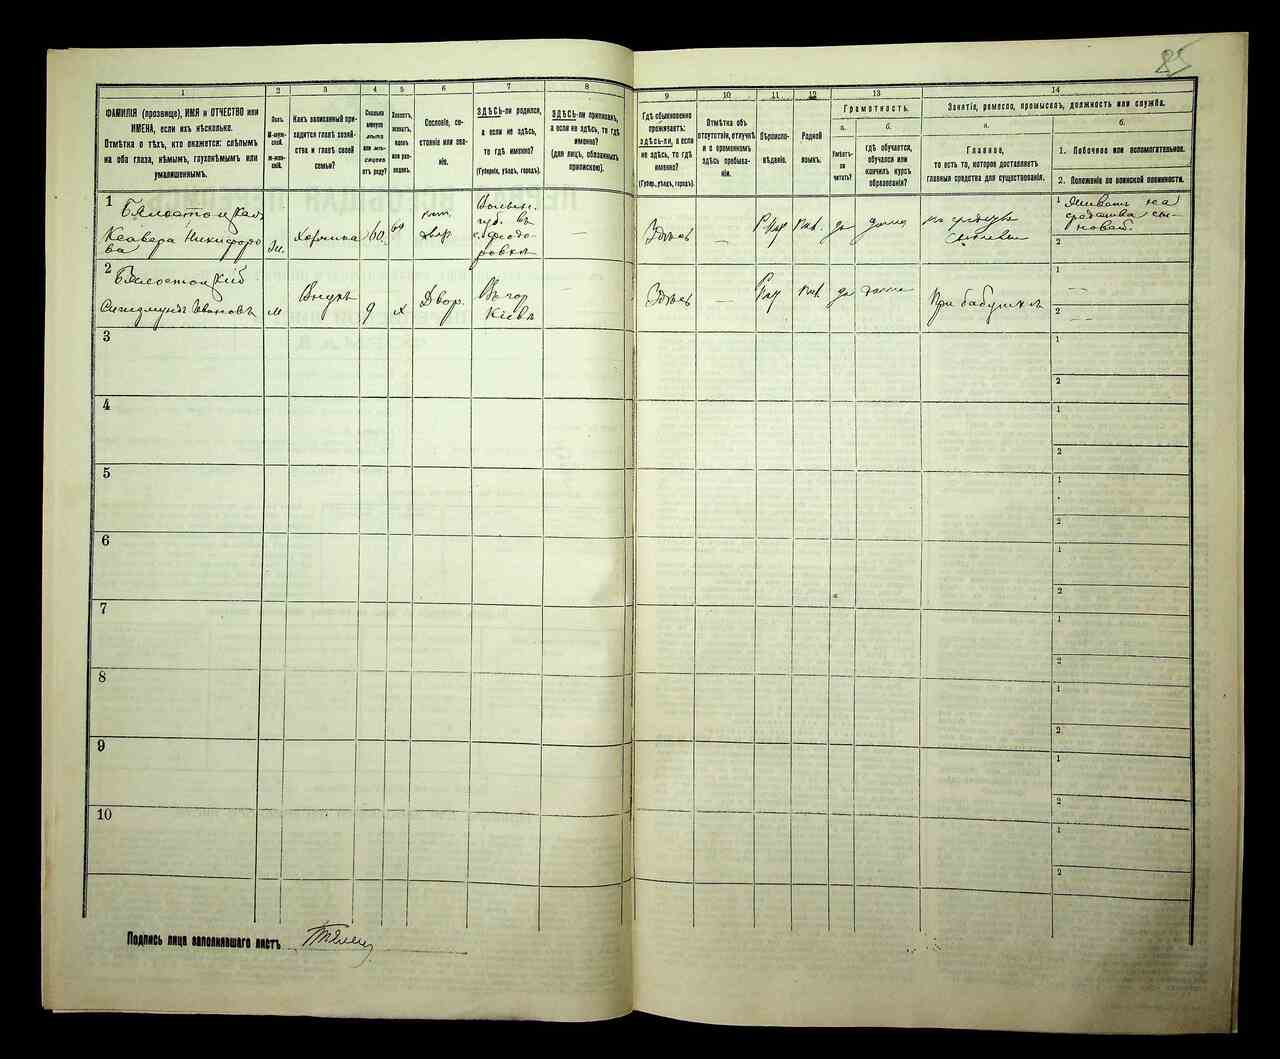 85
1
ФАМИЛІЯ (прозвище), ИМЯ и ОТЧЕСТВО или
ИМЕНА, если ихъ нѣсколько.
Отмѣтка о тѣхъ, кто окажется: слѣпымъ
на оба глаза, нѣмымъ, глухонѣмымъ или
умалишеннымъ.
2
Полъ.
М-муж-
ской.
ж-жен-
скій.
3
Какъ записанный при-
ходится главѣ хозяй-
ства и главѣ своей
семьи?
4
Сколько
минуло
лѣтъ
или мѣ-
сяцевъ
отъ роду?
5
Холостъ,
женатъ,
вдовъ
или раз-
веденъ.
6
Сословіе, со-
стояніе или зва-
ніе.
7
ЗДѢСЬ-ли родился,
а если не здѣсь,
то гдѣ именно?
(Губернія, уѣздъ, городъ).
8
ЗДѢСЬ-ли приписанъ,
а если не здѣсь, то гдѣ
именно?
(для лицъ, обязанныхъ
припискою).
9
Гдѣ обыкновенно
проживаетъ:
ЗДѢСЬ-ЛИ, а если
не здѣсь, то гдѣ
именно?
(Губер., уѣздъ, городъ).
10
Отмѣтка объ
отсутствіи, отлучкѣ
и о временномъ
здѣсь пребыва-
ніи.
11
Вѣроиспо-
вѣданіе.
12
Родной
языкъ.
13
Грамотность.
а.
Умѣетъ-
ли
читать?
б.
гдѣ обучается,
обучался или
кончилъ курсъ
образованія?
14
Занятіе, ремесло, промыселъ, должность или служба.
а.
Главное,
то есть то, которое доставляетъ
главныя средства для существованія.
б.
1. Побочное или вспомогательное.
2. Положеніе по воинской повинности.
1
Бялостоцкая
Ксавера Никифоро
ва
ж.
Хозяйка
60
двор
Волын.
губ. въ
с. Федо-
ровкѣ
—
Здѣсь
—
да
дома
сыновьи
1
Живетъ на
средства сы-
новей.
2
2
Бялостоцкій
Сигизмундъ Ивановъ
м
Внукъ
9
х
Двор.
Въ гор
Кіевѣ
—
Здѣсь
—
да
дома
При бабушкѣ
1
—
2
—
3
1
2
4
1
2
5
1
2
6
1
2
7
1
2
8
1
2
9
1
2
10
1
2
Подпись лица заполнявшаго листъ